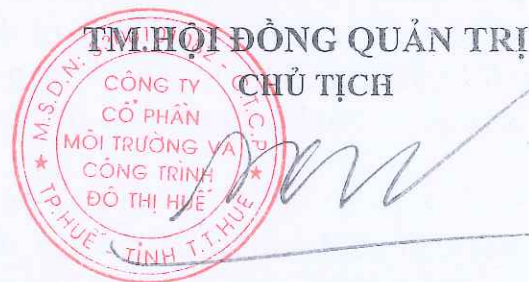 TM.HỘI ĐỒNG QUẢN TRỊ
CHỦ TỊCH
CÔNG TY
CỔ PHẦN
MÔI TRƯỜNG VÀ
CÔNG TRÌNH
ĐÔ THỊ HUẾ
M.S.D.N: C.T.C.P
TP.HUẾ - TỈNH T.T.HUẾ